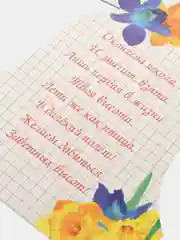 Окончена школа.
И значит, взята
Лишь первая в жизни
Твоя высота.
Лети же, как птица,
В далёкий полёт!
Желаем добиться
Заветных высот!